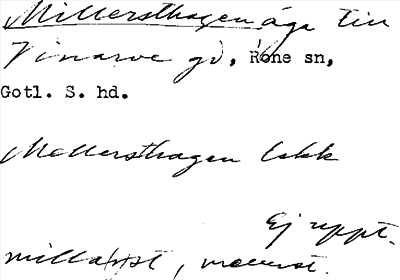 Millersthagen äga till
Vinarve gd, Rone sn,
Gotl. S. hd.
Mellersthagen lekk
Ej uppt.
millarst, mellerst.